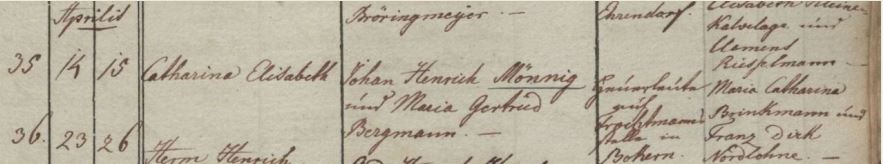 Aprilis
Bröringmeyer. —
Ehrendorf.
Elisabeth Kleine-
Kalvelage und
Clemens
Rießelmann —
35 14 15 Catharina Elisabeth
Johan Henrich Mönnig
und Maria Gertrud
Bergmann. —
Heuerleute
auf
Trochtmanns
stelle in
Bokern.
Maria Catharina
Brinkmann und
Franz Dirk
Nordlohne. —
36. 23 26
Herm Henrich